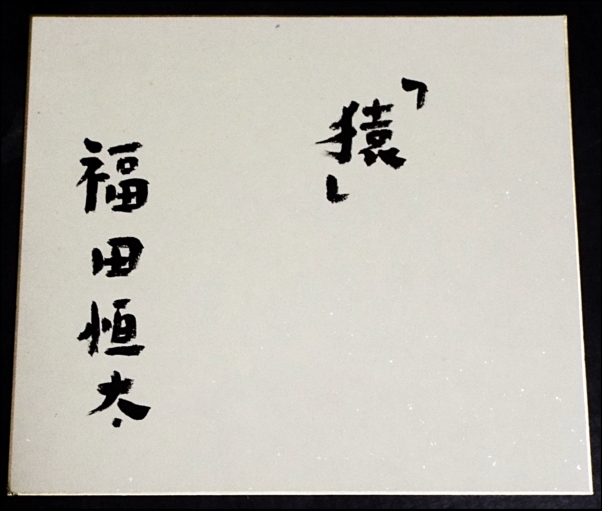 「猿」
福田恒太